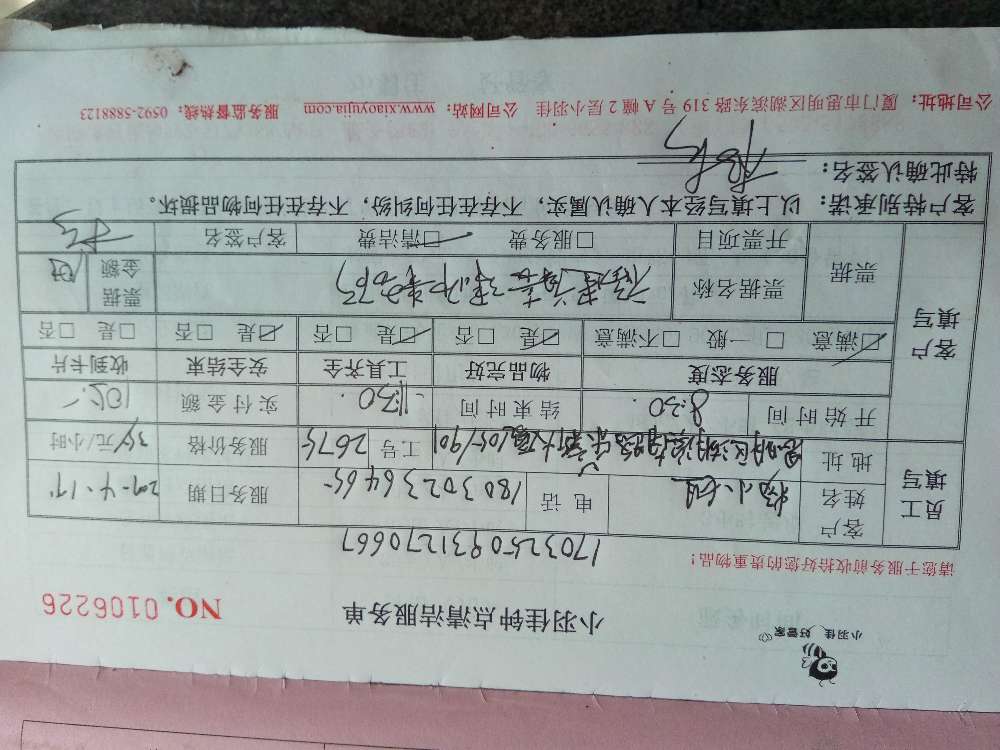 小羽佳 好管家
小羽佳钟点清洁服务单
NO. 0106226
请您于服务前收拾好您的贵重物品！
17032550931270667
员工填写
客户姓名 杨小姐 电话 18030236465 服务日期
地址 工号 2675 服务价格 35 元/小时
开始时间 8:30 结束时间 11:30 实付金额 105
客户填写
服务态度 物品完好 工具齐全 安全结束 收到卡片
☑满意 □一般 □不满意 ☑是 □否 ☑是 □否 ☑是 □否 □是 □否
票据 票据名称 票据金额
开票项目 □服务费 ☑清洁费 客户签名
客户特别承诺： 以上填写经本人确认属实，不存在任何纠纷，不存在任何物品损坏。
特此确认签名：
公司地址：厦门市思明区湖滨东路 319 号 A 幢 2 层小羽佳 公司网站：www.xiaoyujia.com 服务监督热线：0592-5888123